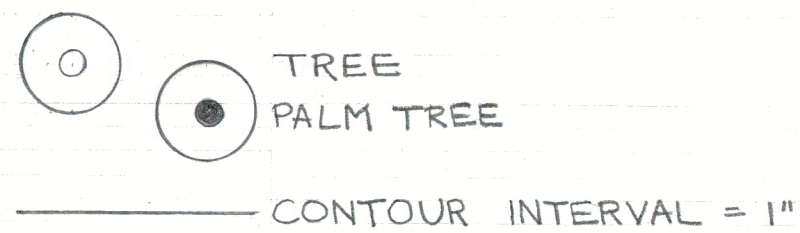 TREE
PALM TREE
CONTOUR INTERVAL = 1"